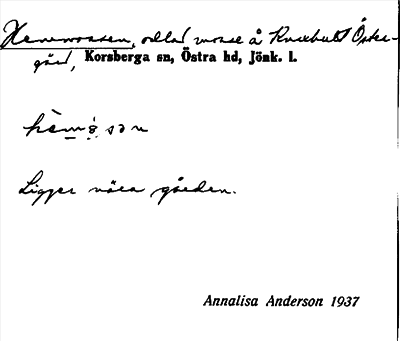 Hemmossen, odlad mosse å Knaxhult Öster-
gård, Korsberga sn, Östra hd, Jönk. l.
Ligger nära gården.
Annalisa Anderson 1937